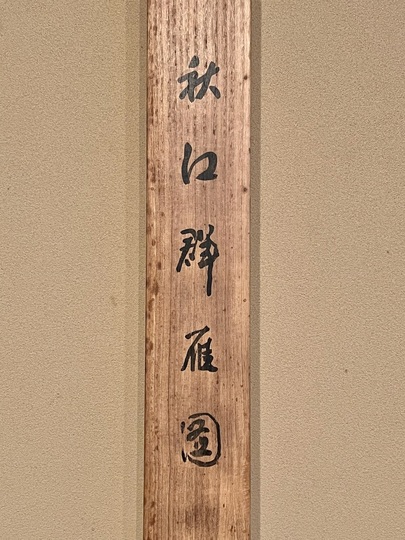 秋江群雁図